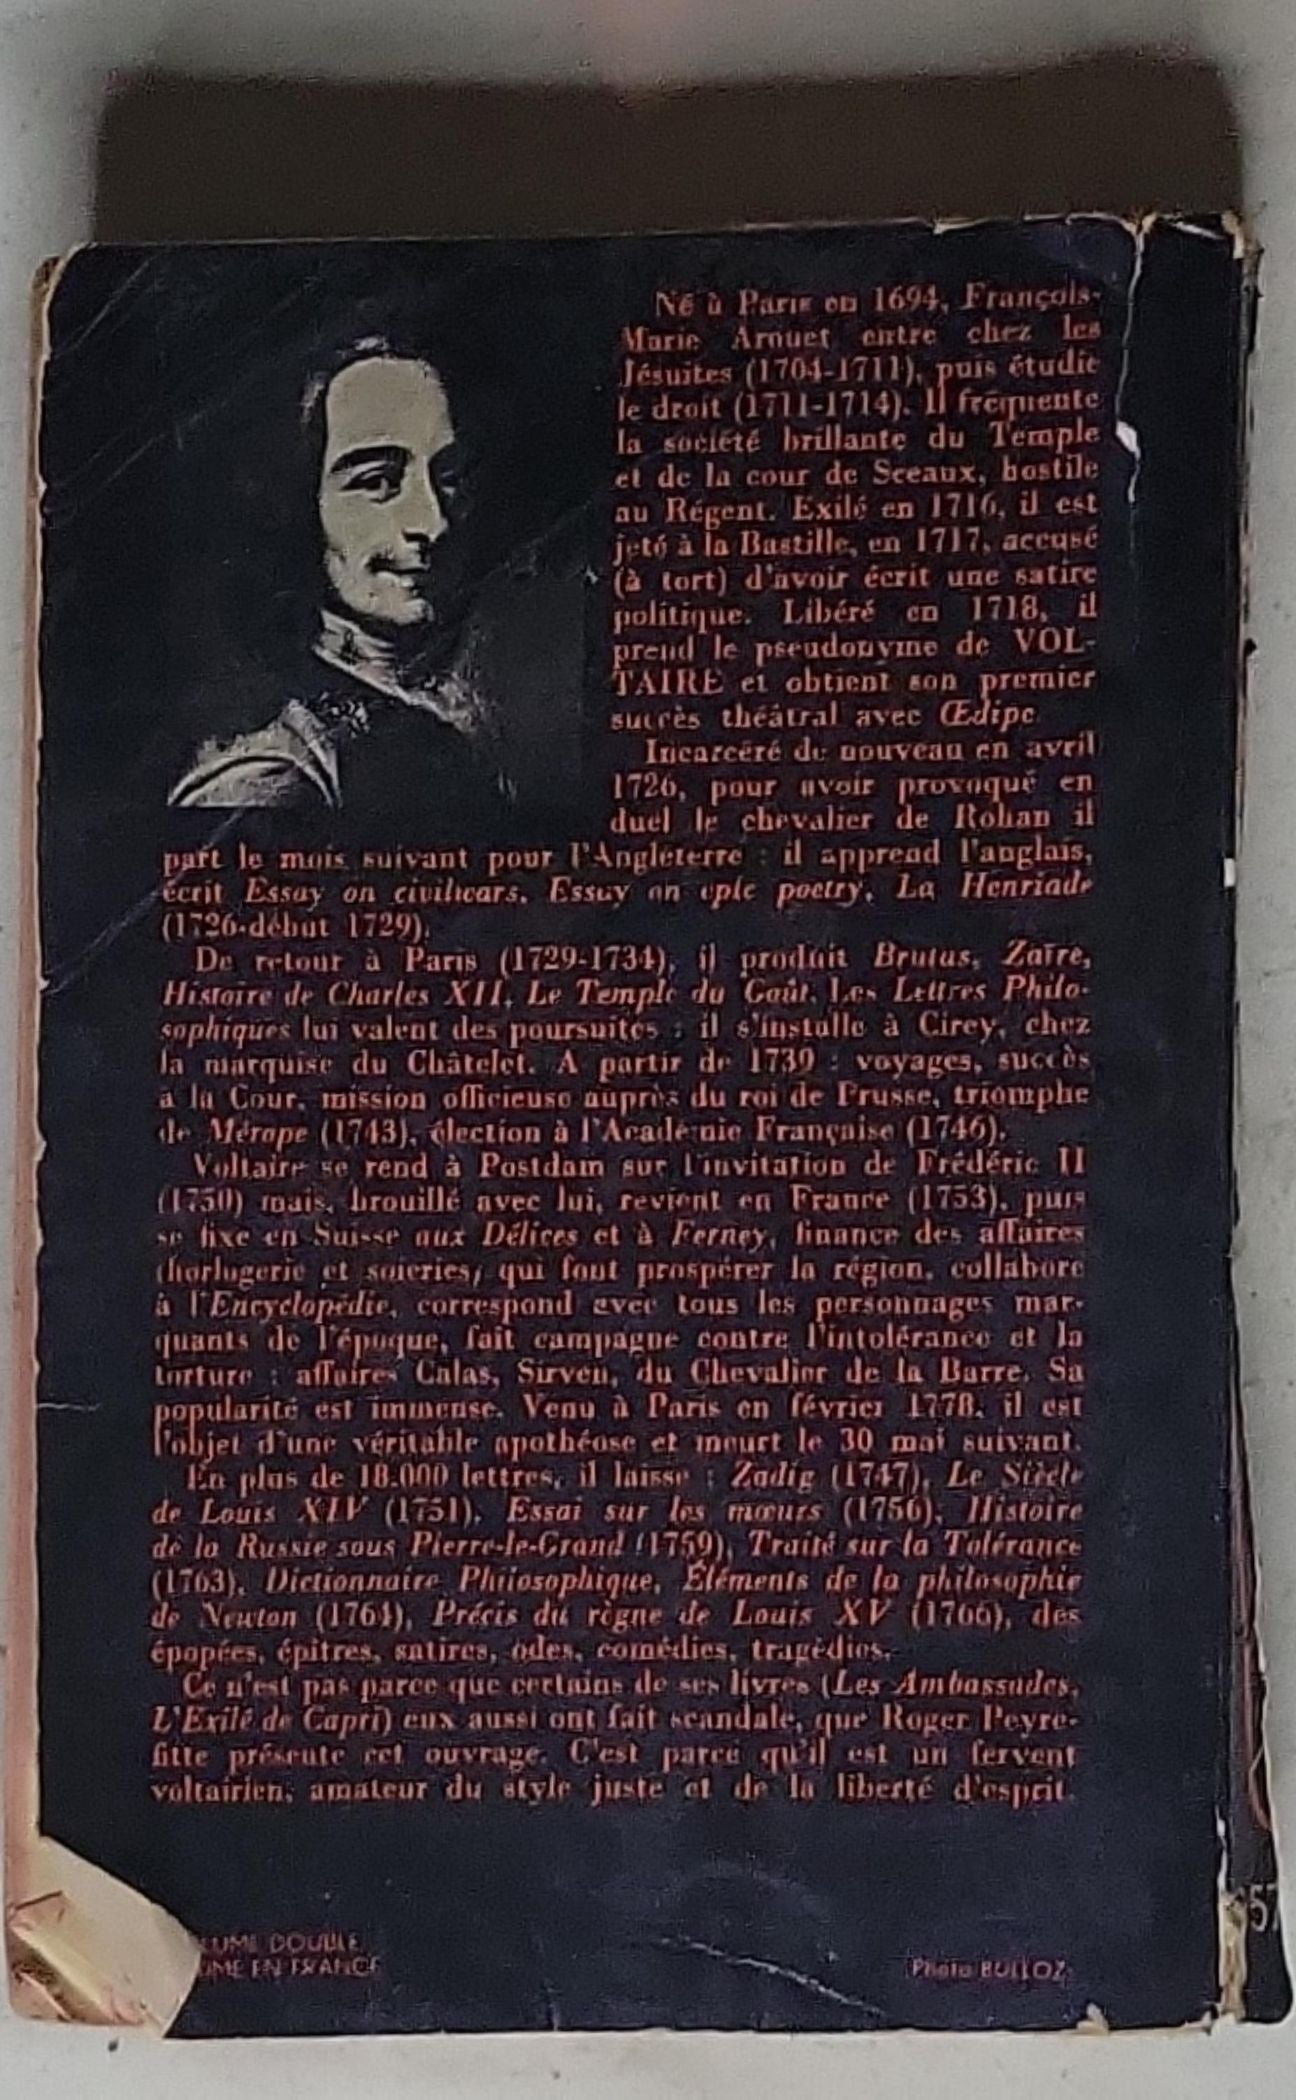 Né à Paris en 1694, François-
Marie Arouet entre chez les
Jésuites (1704-1711), puis étudie
le droit (1711-1714). Il fréquente
la société brillante du Temple
et de la cour de Sceaux, hostile
au Régent. Exilé en 1716, il est
jeté à la Bastille, en 1717, accusé
(à tort) d'avoir écrit une satire
politique. Libéré en 1718, il
prend le pseudonyme de VOL-
TAIRE et obtient son premier
succès théâtral avec Œdipe.
Incarcéré de nouveau en avril
1726, pour avoir provoqué en
duel le chevalier de Rohan il
part le mois suivant pour l'Angleterre : il apprend l'anglais,
écrit Essay on civilwars, Essay on epic poetry, La Henriade
(1726-début 1729).
De retour à Paris (1729-1734), il produit Brutus, Zaïre,
Histoire de Charles XII, Le Temple du Goût. Les Lettres Philo-
sophiques lui valent des poursuites : il s'installe à Cirey, chez
la marquise du Châtelet. A partir de 1739 : voyages, succès
à la Cour, mission officieuse auprès du roi de Prusse, triomphe
de Mérope (1743), élection à l'Académie Française (1746).
Voltaire se rend à Postdam sur l'invitation de Frédéric II
(1750) mais, brouillé avec lui, revient en France (1753), puis
se fixe en Suisse aux Délices et à Ferney, finance des affaires
(horlogerie et soieries) qui font prospérer la région, collabore
à l'Encyclopédie, correspond avec tous les personnages mar-
quants de l'époque, fait campagne contre l'intolérance et la
torture : affaires Calas, Sirven, du Chevalier de la Barre. Sa
popularité est immense. Venu à Paris en février 1778, il est
l'objet d'une véritable apothéose et meurt le 30 mai suivant.
En plus de 18.000 lettres, il laisse : Zadig (1747), Le Siècle
de Louis XIV (1751), Essai sur les mœurs (1756), Histoire
de la Russie sous Pierre-le-Grand (1759), Traité sur la Tolérance
(1763), Dictionnaire Philosophique, Éléments de la philosophie
de Newton (1764), Précis du règne de Louis XV (1766), des
épopées, épitres, satires, odes, comédies, tragédies.
Ce n'est pas parce que certains de ses livres (Les Ambassades,
L'Exilé de Capri) eux aussi ont fait scandale, que Roger Peyre-
fitte présente cet ouvrage. C'est parce qu'il est un fervent
voltairien, amateur du style juste et de la liberté d'esprit.
LUME DOUBLE
IMÉ EN FRANCE
Photo BULLOZ
57